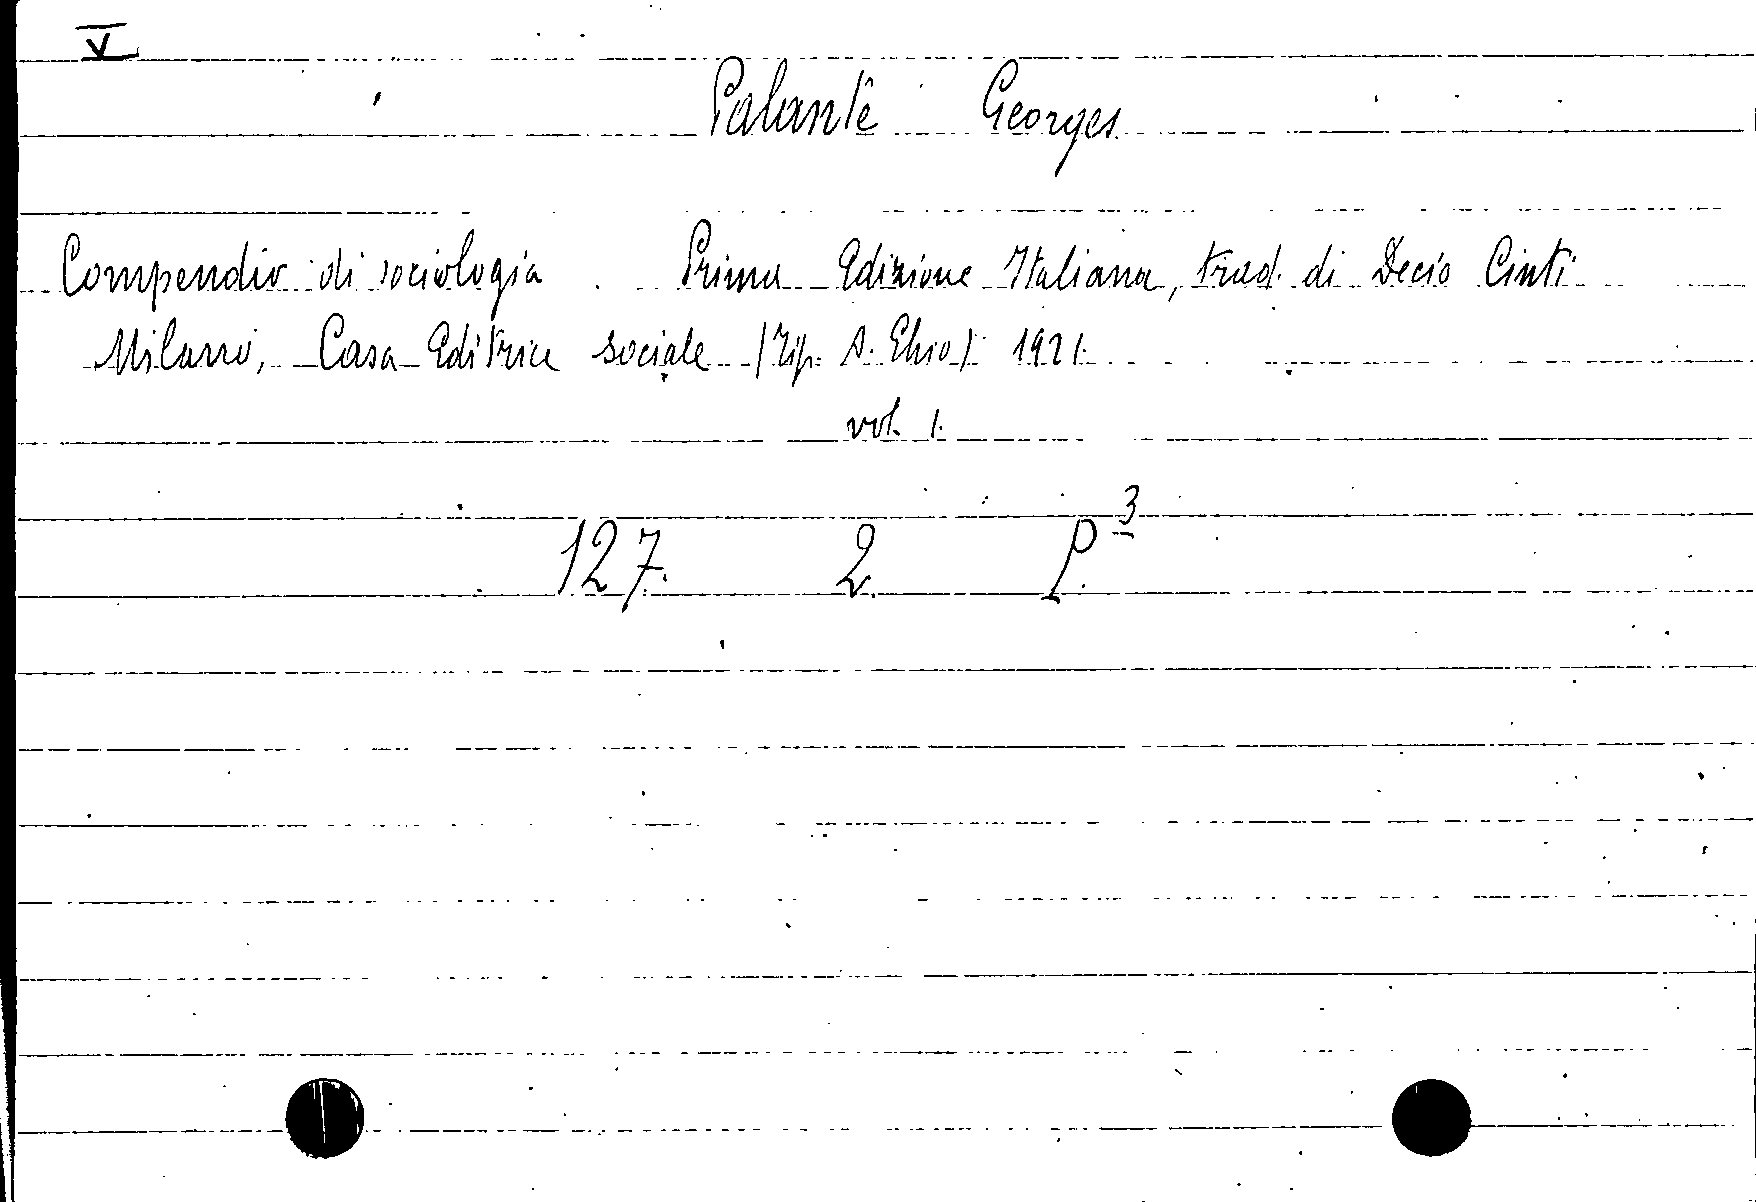 V
Palante Georges
Compendio di sociologia. Prima Edizione Italiana, trad. di Decio Cinti
Milano, Casa Editrice sociale (Tip. A. Chio) 1921.
vol. 1.
127. 2. P.3